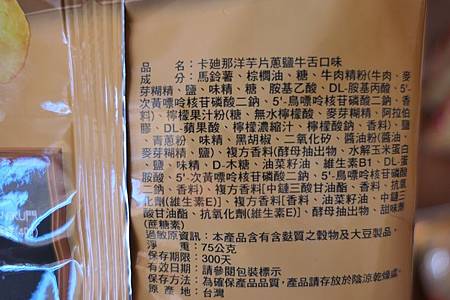 品 名：卡迪那洋芋片蔥鹽牛舌口味
成 分：馬鈴薯、棕櫚油、糖、牛肉精粉(牛肉、麥
芽糊精、鹽、味精、糖、胺基乙酸、DL-胺基丙酸、5'-
次黃嘌呤核苷磷酸二鈉、5'-鳥嘌呤核苷磷酸二鈉、香
料)、檸檬果汁粉(糖、無水檸檬酸、麥芽糊精、阿拉伯
膠、DL-蘋果酸、檸檬濃縮汁、檸檬酸鈉、香料)、鹽
、青蔥粉、味精、黑胡椒、二氧化矽、醬油粉(醬油、
麥芽糊精、鹽)、複方香料(酵母抽出物、水解玉米蛋白
、鹽、味精、D-木糖、油菜籽油、維生素B1、DL-蛋
胺酸、5'-次黃嘌呤核苷磷酸二鈉、5'-鳥嘌呤核苷磷酸
二鈉、香料)、複方香料[中鏈三酸甘油酯、香料、抗氧
化劑(維生素E)]、複方香料[香料、油菜籽油、中鏈三
酸甘油酯、抗氧化劑(維生素E)]、酵母抽出物、甜味劑
(蔗糖素)
過敏原資訊：本產品含有含麩質之穀物及大豆製品。
淨 重：75公克
保存期限：300天
有效日期：請參閱包裝標示
保存方法：為確保產品品質，產品請存放於陰涼乾燥處。
原 產 地：台灣